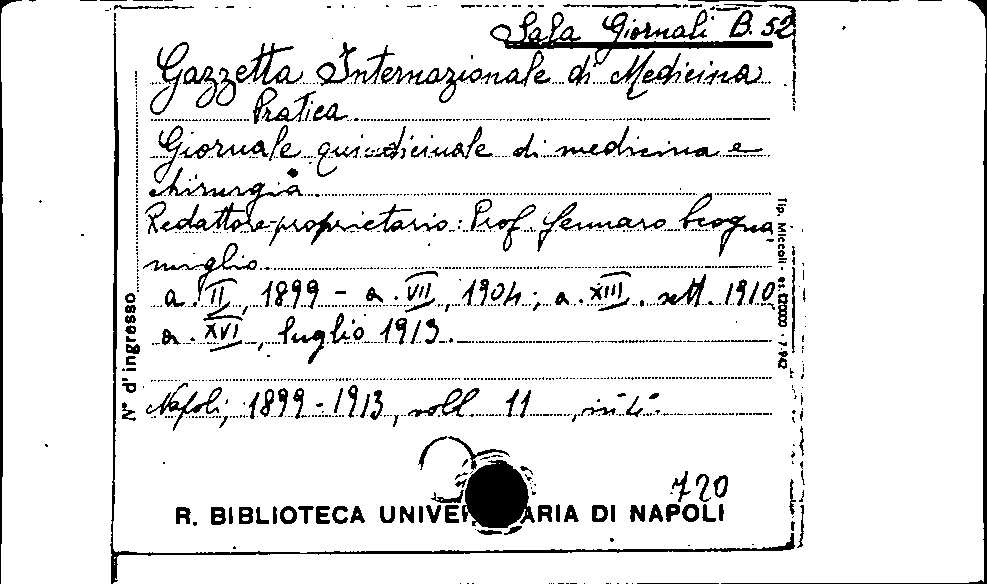 Sala Giornali B. 52
Gazzetta Internazionale di Medicina
Pratica.
Giornale quindicinale di medicina e
chirurgia.
Redattore-proprietario: Prof. Gennaro Scogna
miglio.
a. II, 1899 - a. VII, 1904; a. XIII. sett. 1910
a. XVI, luglio 1913.
Napoli, 1899-1913, voll. 11, in 4°.
720
R. BIBLIOTECA ARIA DI NAPOLI
N° d'ingresso
Tip. Miccoli - 7-942